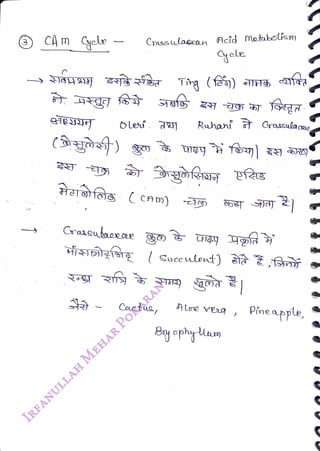 ③ CAM Cycle — Crassulacean Acid Metabolism
Cycle
→ सर्वप्रथम इसके संकेत Ting (टिंग) नामक व्यक्ति
ने प्रस्तुत किये जबकि इस चक्र का विस्तृत
अध्ययन Oleri तथा Ruhani ने Crassulaceae
(क्रेसुलेसी) कुल के पादप में किया। इस कारण
इस चक्र को क्रेसुलेसियन एसिड
मेटाबोलिक (CAM) चक्र कहा जाता है।
→ Crassulaceae कुल के पादप प्रकृति में
मांसलोद्भिद् (Succulent) होते है, जिनमें
रन्ध्र रात्रि के समय खुलते है।
जैसे - Cactus, Aloe vera, Pineapple,
Bryophyllum
IRFANULLAH MEHAR POKARAN